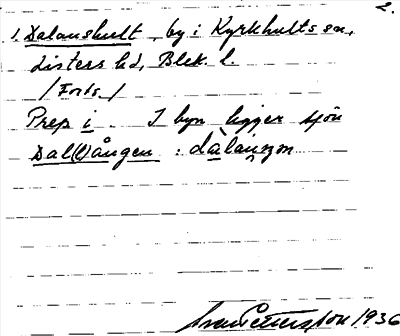 2.
1. Dalanshult, by i Kyrkhults sn,
Listers hd, Blek. l.
/Forts./
Prep i. I byn ligger sjön
Dal(l)ången : dàlaŋən
Sven Pettersson 1936